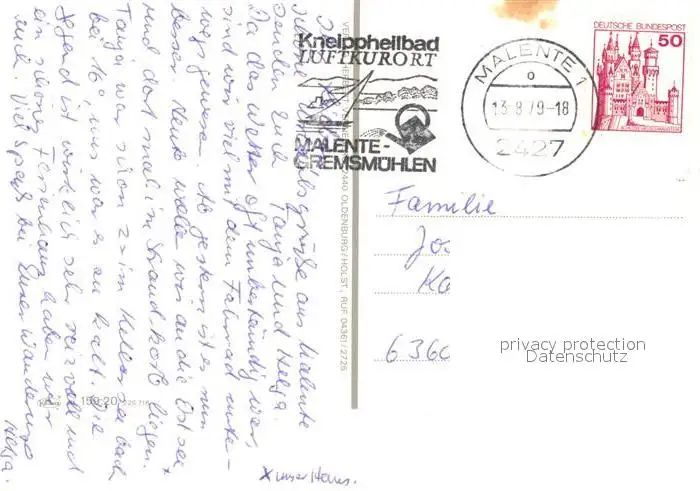 Kneippheilbad
LUFTKURORT
MALENTE-
GREMSMÜHLEN
MALENTE 1
13.-8.79-18
2427
DEUTSCHE BUNDESPOST
50
Familie
Jos
Ko
6360
privacy protection
Datenschutz
2440 OLDENBURG/HOLST., RUF 04361/2726
159 20
aus Malente
senden Euch Tanja und Helga.
Da das Wetter oft unbeständig war,
sind wir viel mit dem Fahrrad unter-
wegs gewesen. Ab gestern ist es nun
besser. Heute wollen wir an die Ostsee
und dort mal im Strandkorb liegen.
Tanja war schon im Kellersee bad
bei 16°, uns war es zu kalt. Die
Gegend ist wirklich sehr reizvoll und
ein schönes Ferienhaus haben wir
auch. Viel Spaß bei Eurer Wanderung
Helga.
x unser Haus.